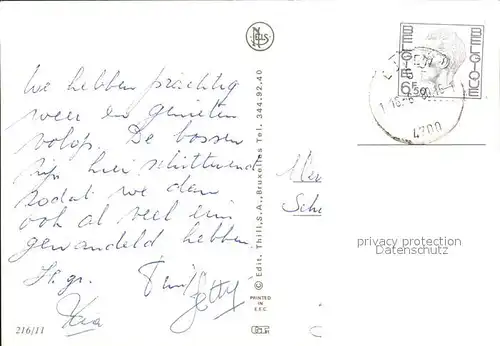 NELS
BELGIE BELGIQUE
6F50
4700
We hebben prachtig
weer en genieten
volop. De bossen
zijn hier schitterend
zodat we dan
ook al veel in
gewandeld hebben
H. gr.
© Edit. Thill, S.A., Bruxelles Tel. 344.92.40
PRINTED
IN
E.E.C.
216/11
privacy protection
Datenschutz